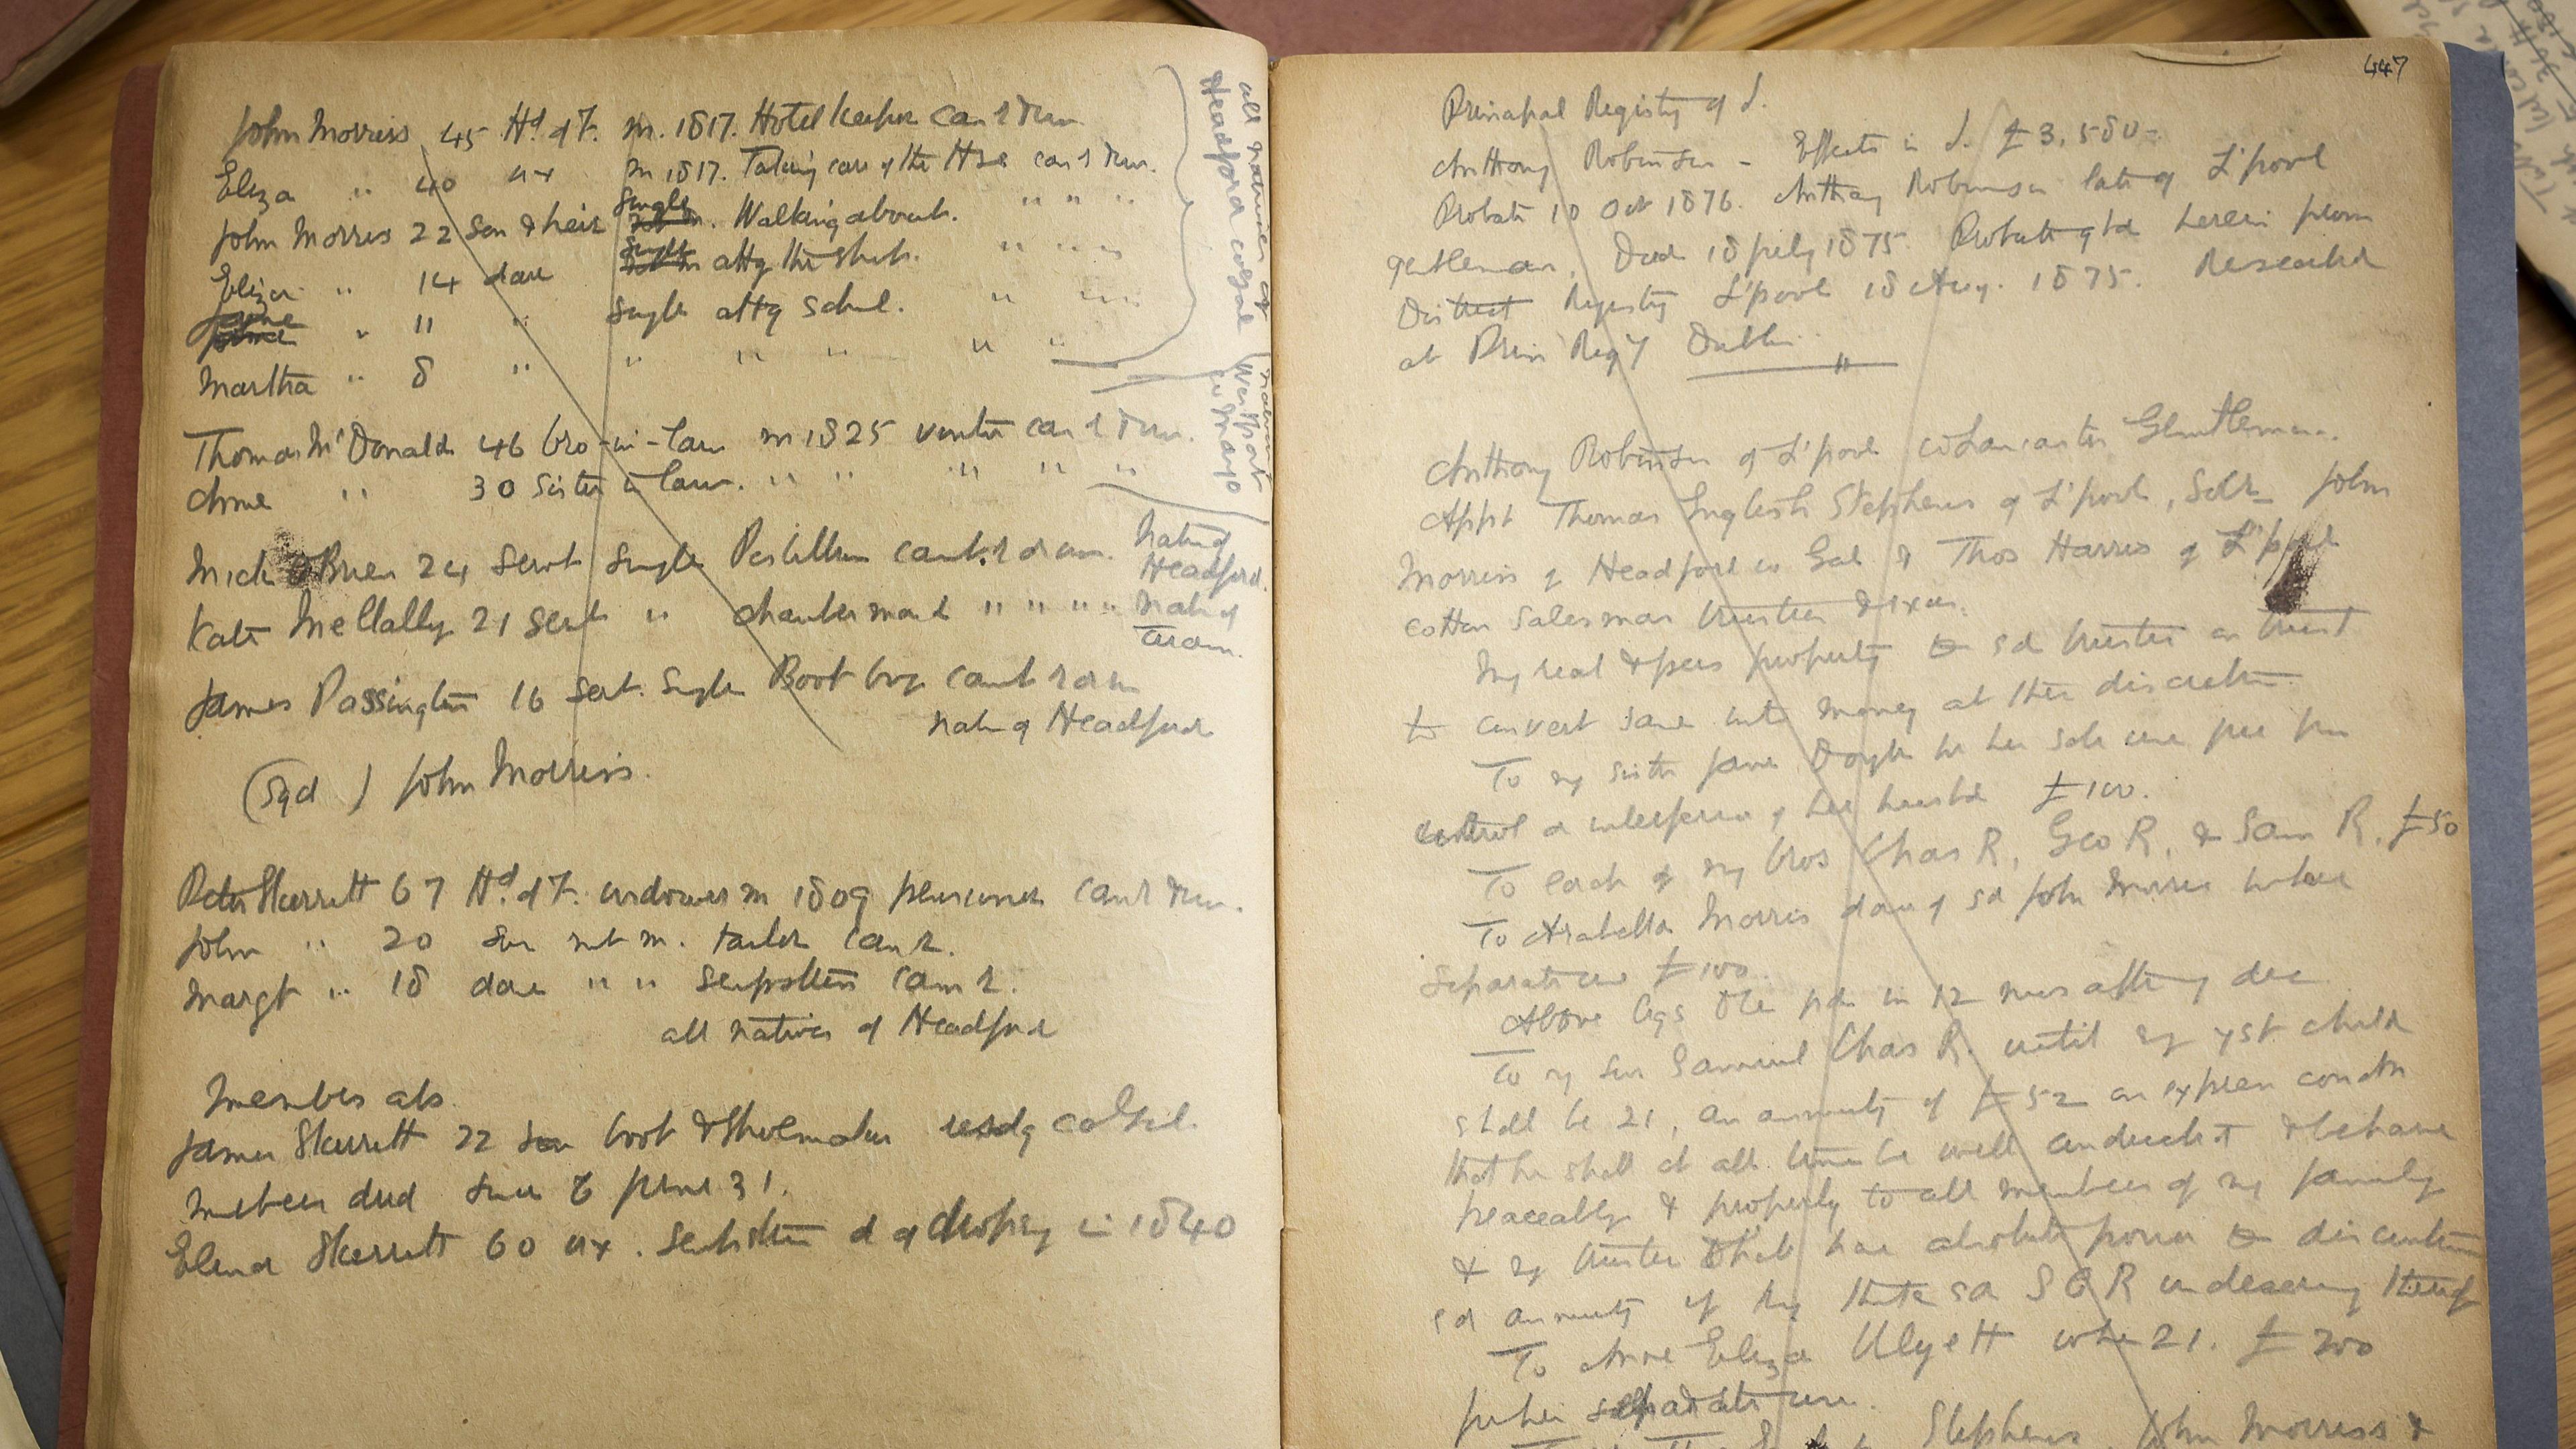 John Morriss 45 Hd of F. m. 1817. Hotel keeper can r & w
Eliza " 40 ux m 1817. Taking care of the Hse can r & w.
John Morris 22 Son & heir single . Walking about. " " "
Eliza " 14 dau single attg the shop. " " "
" 11 " Single attg school. " " "
Martha " 8 " " " " " "
all natives of
Headford co Gal
Thomas McDonald 46 bro-in-law m 1825 can r & w.
Anne " 30 Sister in law. " " " " "
natives
Westport
co Mayo
Mick O'Brien 24 Servt Single Postillion cant r or w. nat of
Headford.
Kate McNally 21 Servt " chambermaid " " " " nat of
Tuam.
James Passington 16 Servt. Single Boot boy cant r or w
nat of Headford
(Sgd) John Morriss.
Peter Skerrett 67 Hd of F. widower m 1809 pensioner can r & w.
John " 20 son not m. tailor can r.
Margt " 18 dau " " sempstress can r.
all natives of Headford
Members abs.
James Skerrett 22 son boot & shoemaker resdg co Gal.
Members died since 6 June 31.
Elenor Skerrett 60 ux. d of dropsy in 1840
447
Principal Registry of I.
Anthony Robinson - Effects in I. £3,580-
Probate 10 Oct 1876. Anthony Robinson late of L'pool
gentleman. Died 18 July 1875. Probate gtd herein from
District Registry L'pool 18 Aug. 1875. Resealed
at Prin Regy Dublin. "
Anthony Robinson of L'pool co Lancaster Gentleman.
Appt Thomas English Stephens of L'pool, Solr John
Morriss of Headford co Gal & Thos Harris of L'pool
cotton salesman trustees & exors.
My real & pers property to sd trustees on trust
to convert same into money at their discretion.
To my sister Jane Doyle for her sole use free frm
control or interference of her husbd £100.
To each of my bros Chas R, Geo R, & Sam R. £50
To Arabella Morris dau of sd John Morris for her
separate use £100.
Above legs to be pd in 12 mos after my dec
To my son Samuel Chas R. until my yst child
shall be 21, an annuity of £52 on express condtn
that he shall at all times be well conducted & behave
peaceably & properly to all members of my family
& my trustees shall have absolute power to discontinue
sd annuity if they think sd S C R undeserving thereof
To Anne Eliza Ulyett when 21. £200
for her separate use.
Stephens, John Morriss &